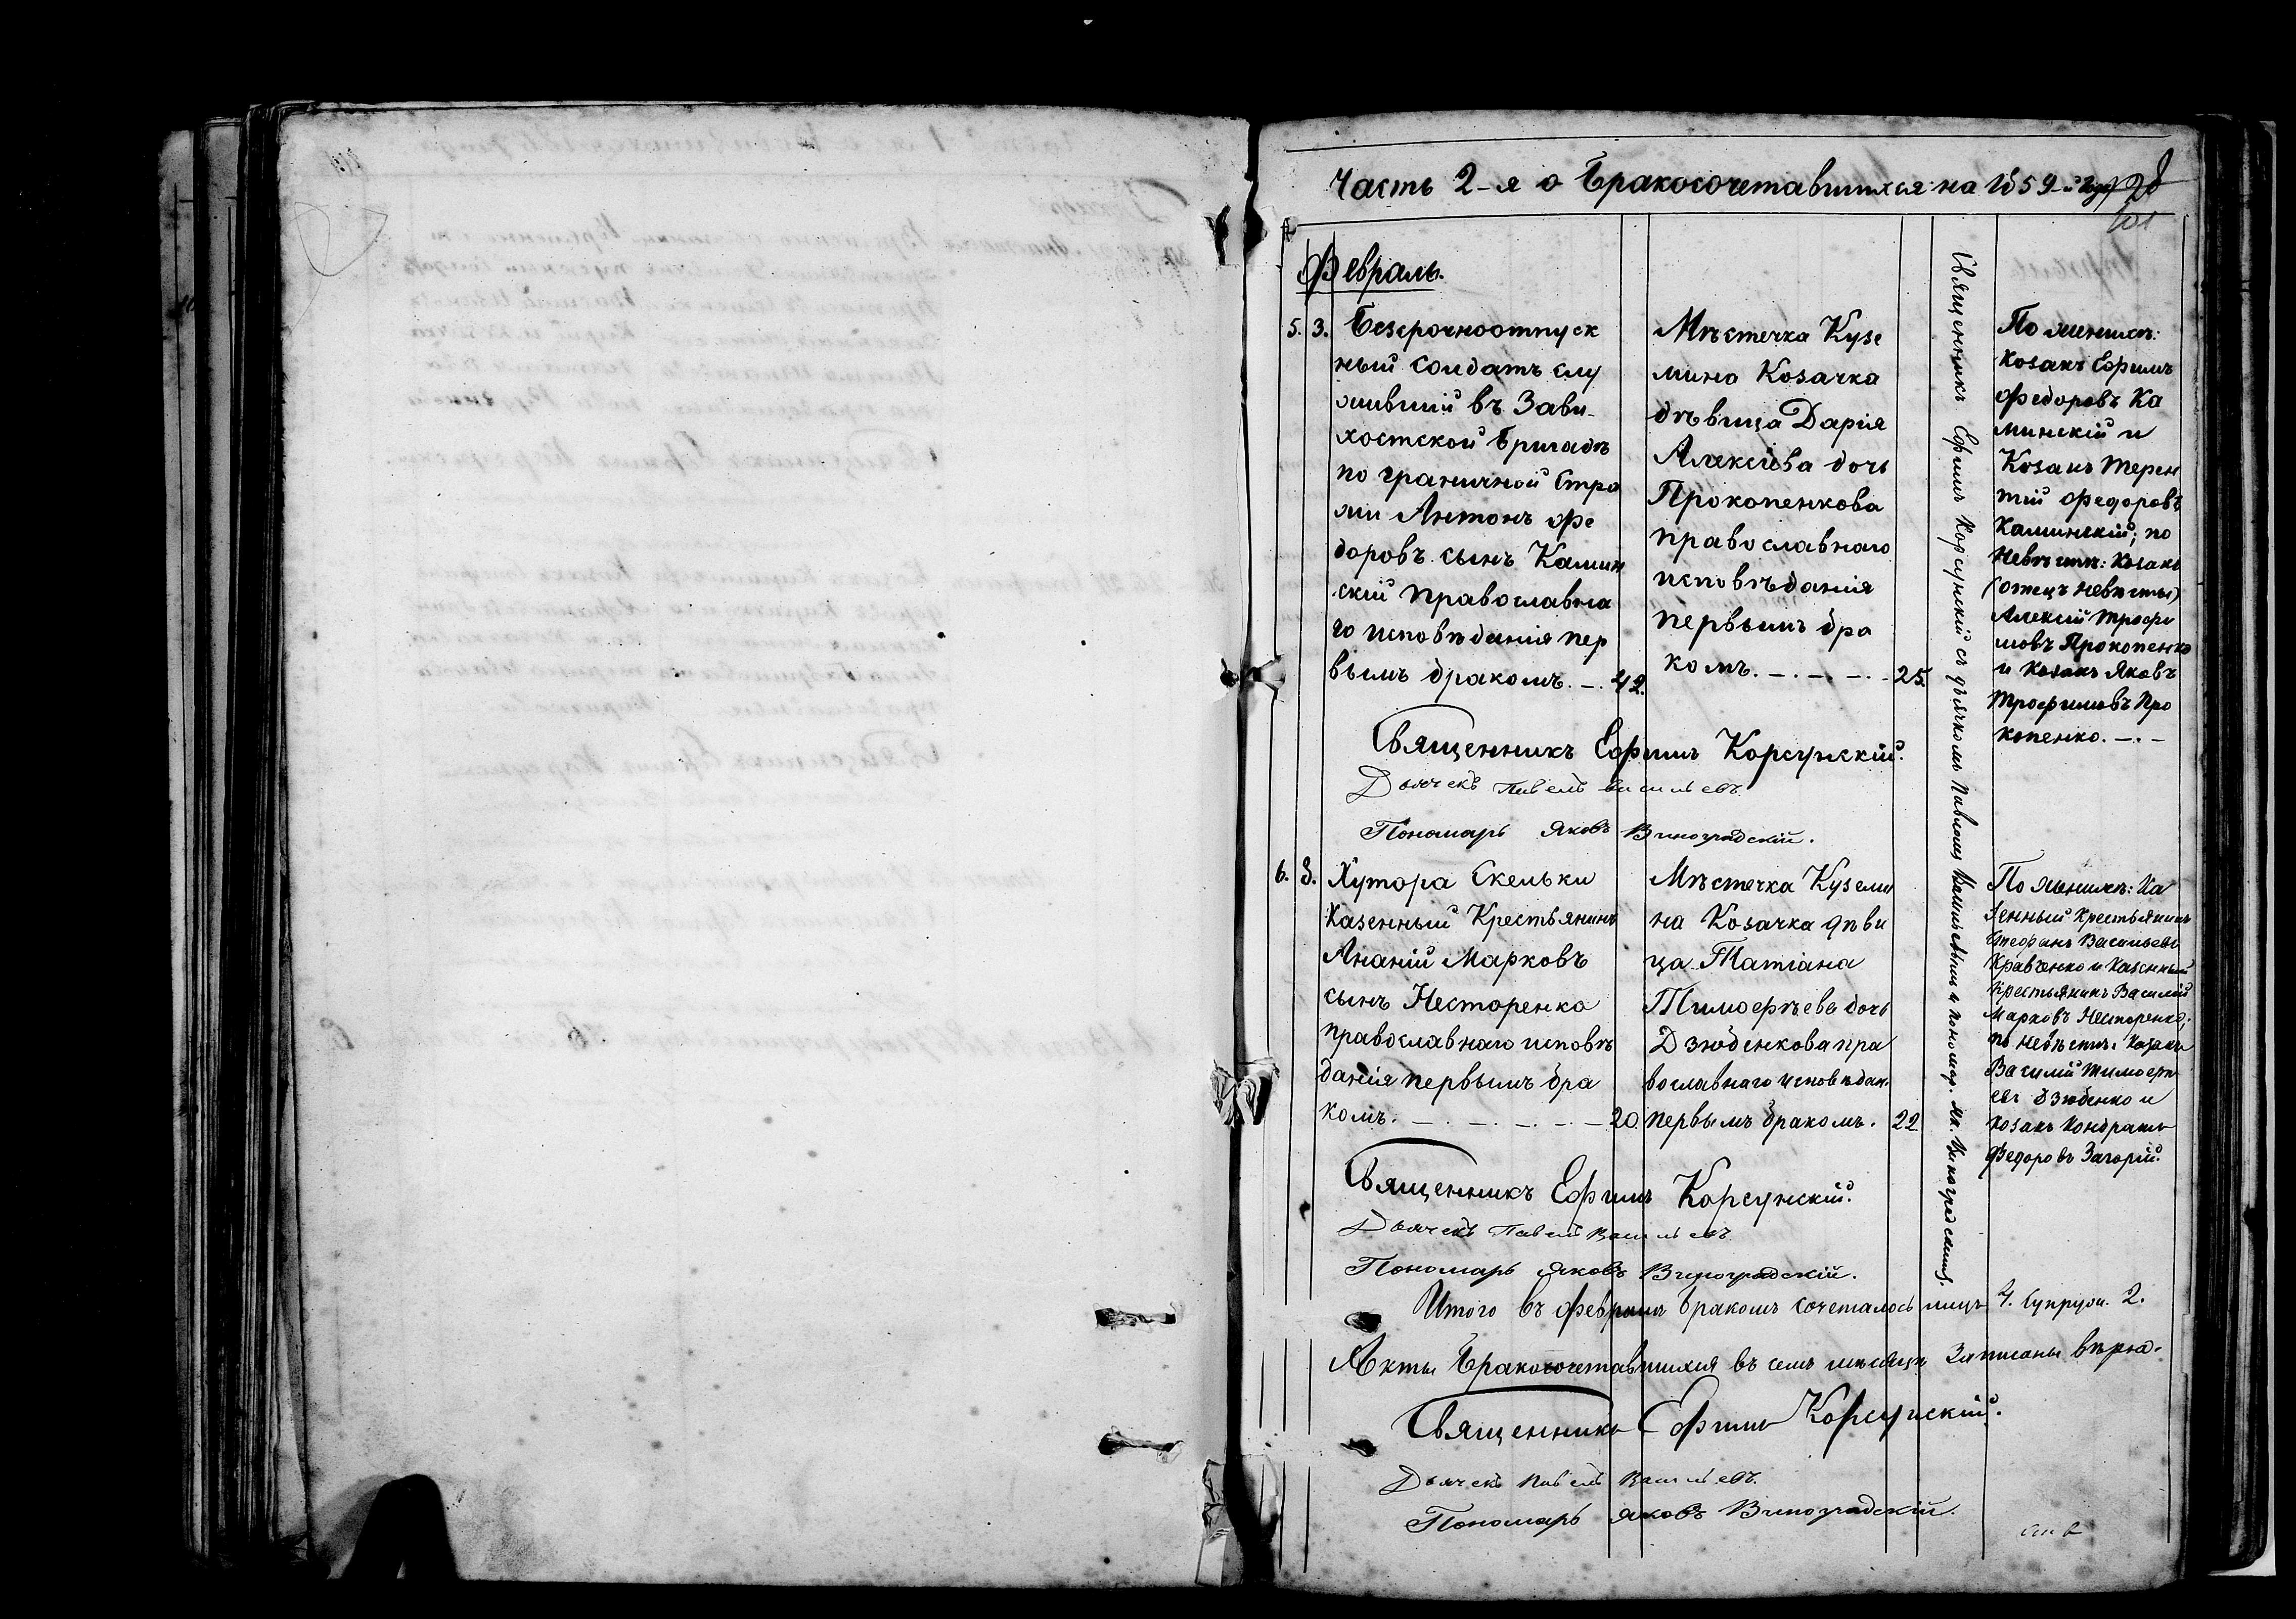 Часть 2-я о Бракосочетавшихся на 1859-й годъ 28
101
Февраль.
5. 3. Безсрочноотпуск
ный солдатъ слу
жившій въ Зави-
хостской бригадѣ
по граничной Стра
жи Антонъ Фе
доровъ сынъ Камин
скій православна
го исповѣданія пер
вымъ бракомъ. 42.
Мѣстечка Кузе
мина Козачка
дѣвица Дарія
Алексіева дочь
Прокопенкова
православнаго
исповѣданія
первымъ бра
комъ. 25.
Священникъ Ефимъ Корсунскій съ дьячкомъ Павломъ Васильевымъ и пономар. Як. Виноградскимъ.
По женихѣ:
Козакъ Ефимъ
Федоровъ Ка
минскій и
Козакъ Терен
тій Федоровъ
Каминскій; по
Невѣстѣ: Козакъ
(отецъ невѣсты)
Алексій Трофи
мовъ Прокопенко
и Козакъ Яковъ
Трофимовъ Про
копенко.
Священникъ Ефимъ Корсунскій.
Дьячекъ Павелъ Васильевъ
Пономарь Яковъ Виноградскій.
6. 8. Хутора Скельки
Казенный Крестьянинъ
Ананій Марковъ
сынъ Несторенко
православнаго исповѣ
данія первымъ бра
комъ. 20.
Мѣстечка Куземи
на Козачка дѣви
ца Татіана
Тимофѣева дочь
Дзюбенкова пра
вославнаго исповѣдан.
первымъ бракомъ. 22
По женихѣ: Ка
зенный Крестьянинъ
Стефанъ Васильевъ
Кравченко и Казенный
Крестьянинъ Василій
Марковъ Несторенко;
по невѣстѣ: Козакъ
Василій Тимофѣ
евъ Дзюбенко и
Козакъ Кондратъ
Федоровъ Загорій.
Священникъ Ефимъ Корсунскій.
Дьячекъ Павелъ Васильевъ
Пономарь Яковъ Виноградскій.
Итого въ Февралѣ бракомъ сочеталось лицъ 4. Супруж. 2.
Акты Бракосочетавшихся въ семъ мѣсяцѣ Записаны вѣрно.
Священникъ Ефимъ Корсунскій.
Дьячекъ Павелъ Васильевъ.
Пономарь Яковъ Виноградскій.